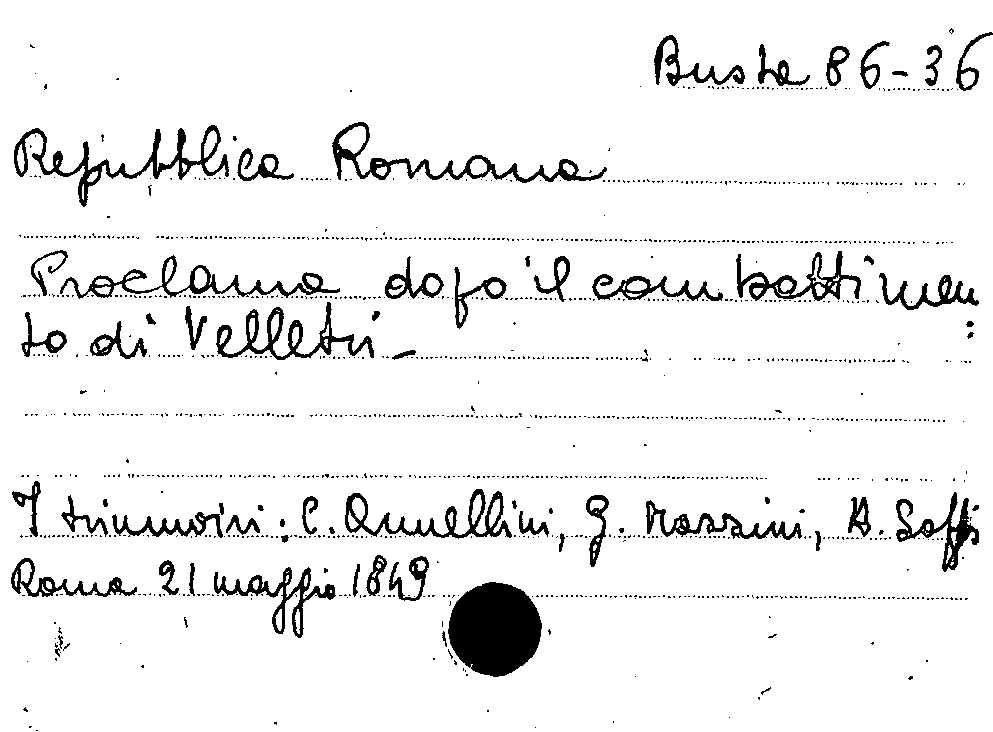 Busta 86-36
Repubblica Romana
Proclama dopo il combattimen
to di Velletri -
I triumviri: C. Armellini, G. Mazzini, A. Saffi
Roma 21 maggio 1849